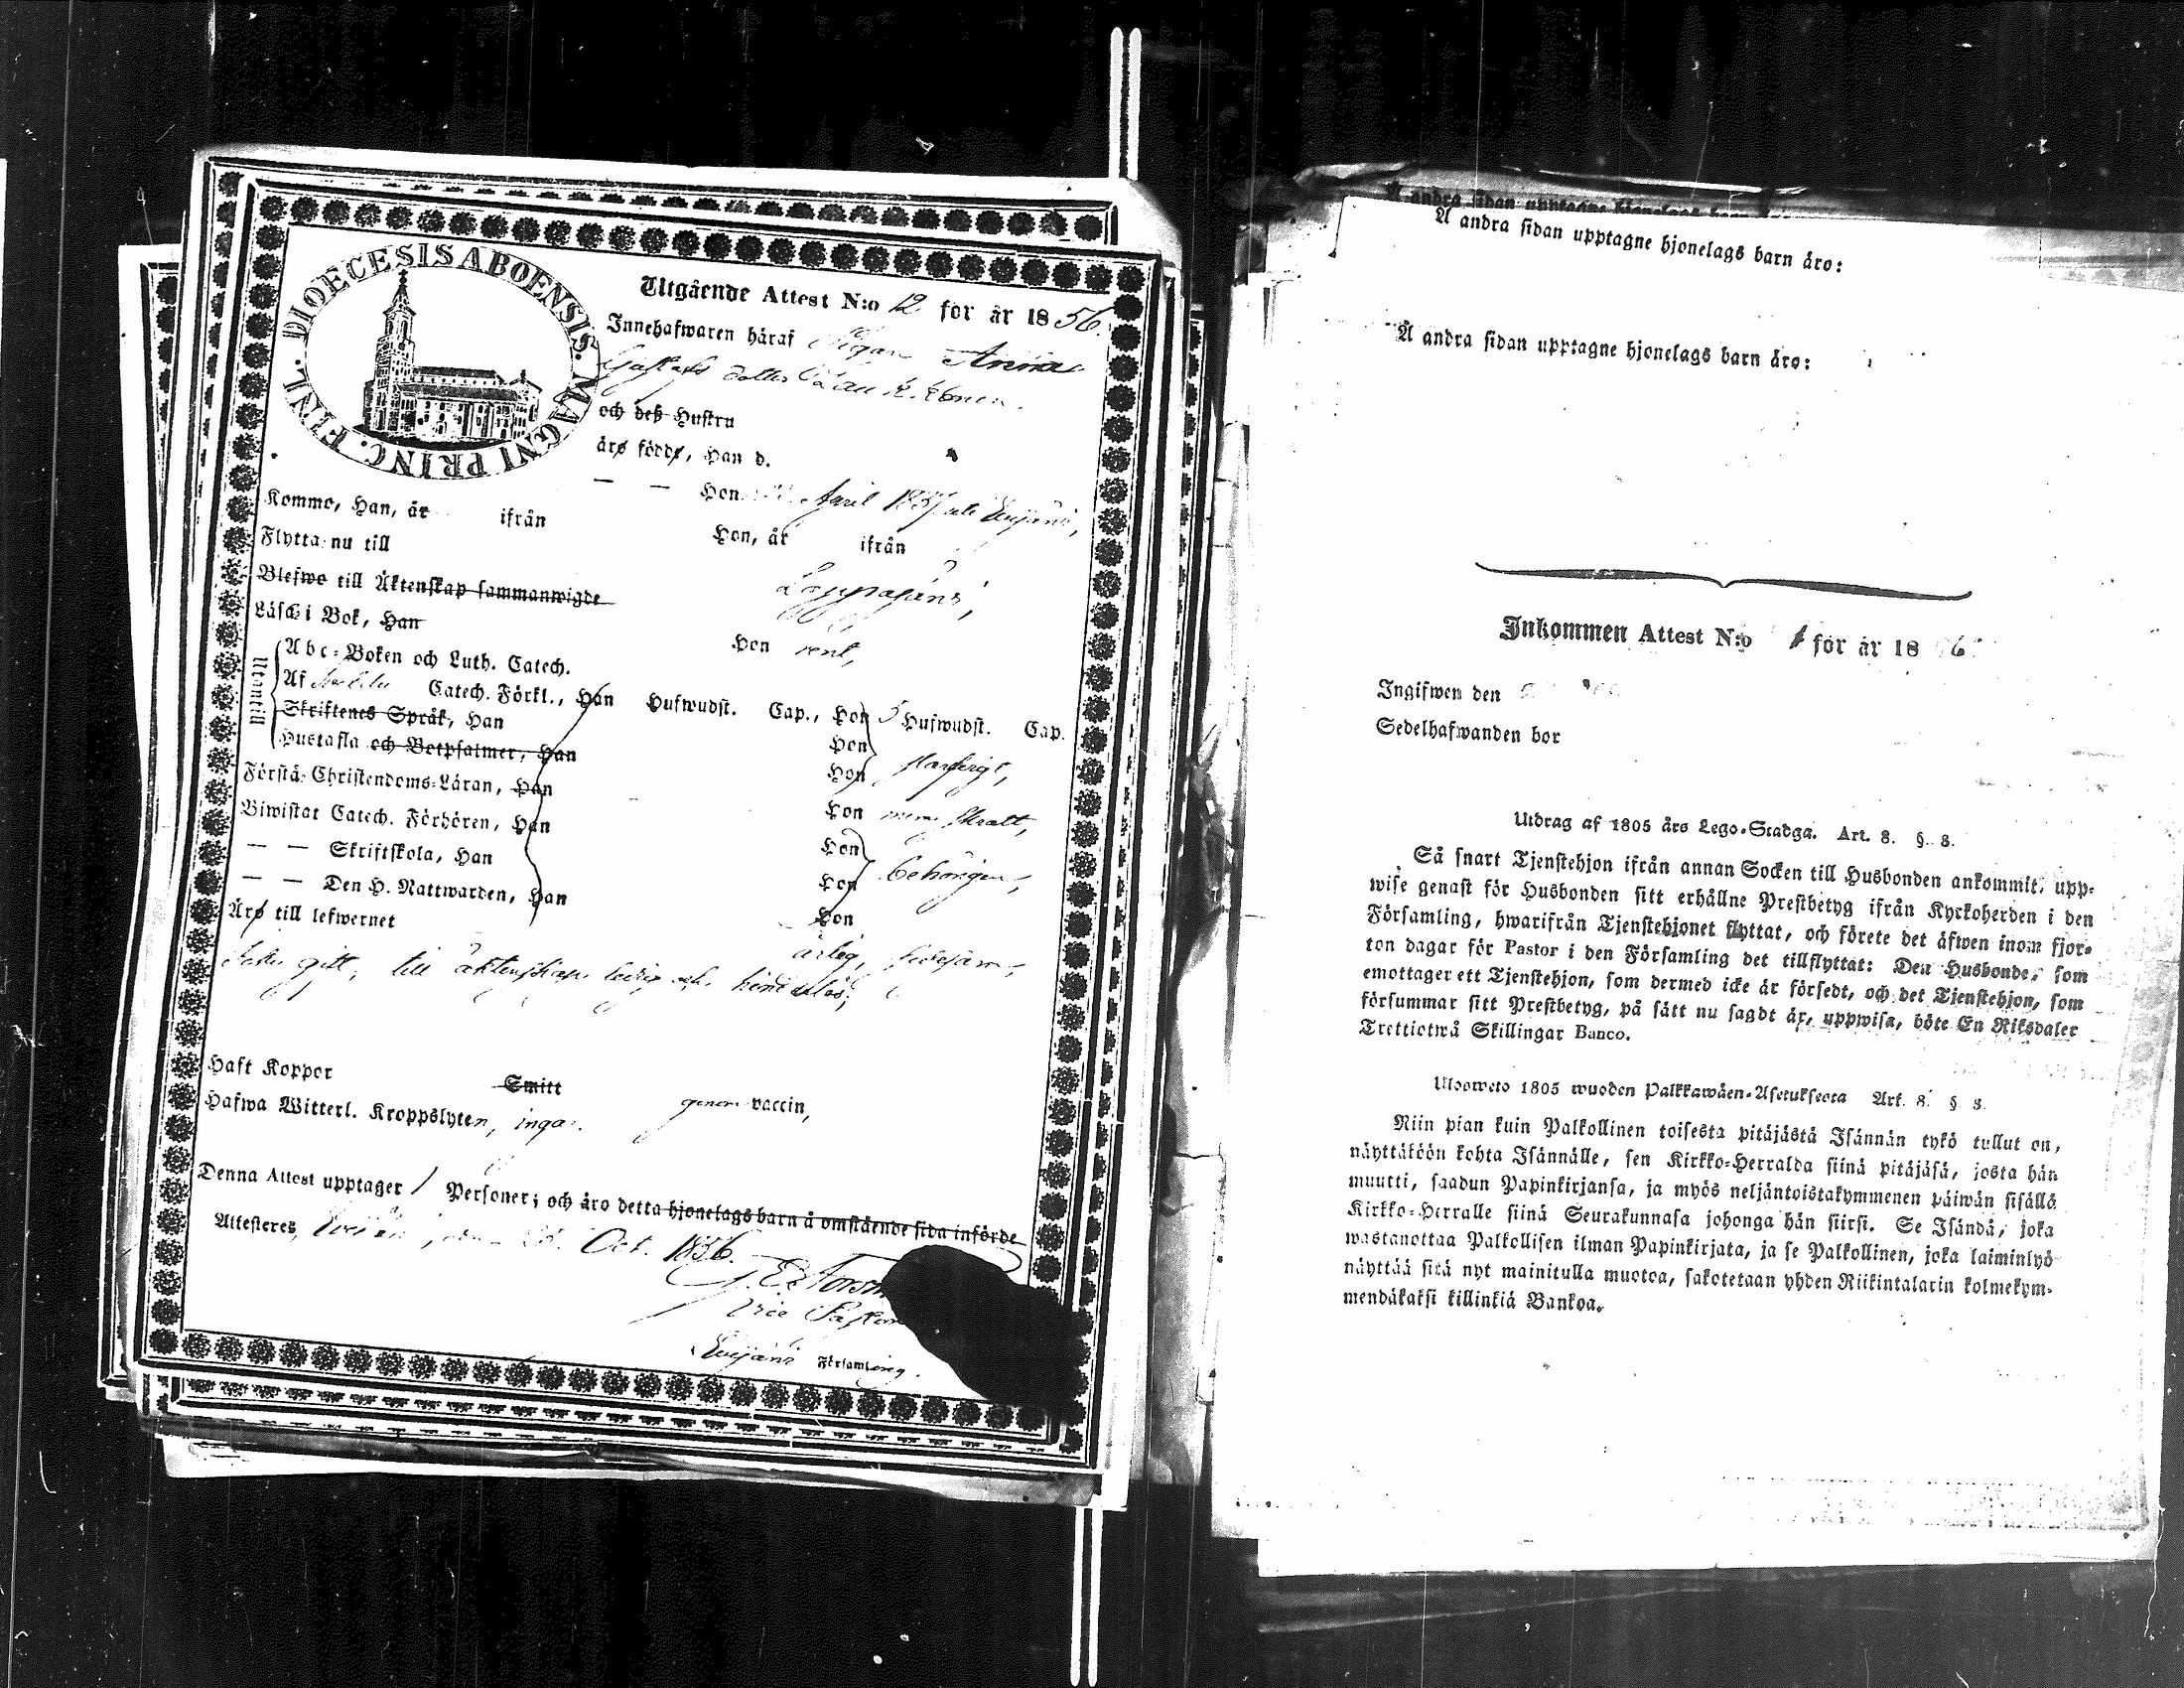 DIOECESIS ABOENSIS. MAGNI PRINC. FINL.
Utgående Attest N:o 12 för år 1856.
Innehafwaren häraf Pigan Anna
Gustafs dotter
och deß Hustru
äro födde, Han d.
— — Hon April 1837 uti Eurjäni,
Komme, Han, år ifrån Hon, år ifrån
Flytta nu till Loppajärvi,
Blefwo till Äktenskap sammanwigde
Läsa i Bok, Han Hon rent,
Utantill
Abc-Boken och Luth. Catech.
Af Catech. Förkl., Han Hufwudst. Cap., Hon 5 Hufwudst. Cap.
Skriftenes Språk, Han Hon
Hustafla och Botpsalmer, Han Hon
Förstå Christendoms-Läran, Han Hon
Biwistat Catech. Förhören, Han Hon
— — Skriftskola, Han Hon behörigen,
— — Den H. Nattwarden, Han Hon
Äro till lefwernet ärlig,
till äktenskap ledig och
Haft Koppor Smitt genom vaccin,
Hafwa Witterl. Kroppslyten, inga.
Denna Attest upptager 1 Personer; och äro detta hjonelags barn å omstående sida införde
Attesteres, Oct. 1856.
Vice Pastor
Församling.
Å andra sidan upptagne hjonelags barn äro:
Å andra sidan upptagne hjonelags barn äro:
Å andra sidan upptagne hjonelags barn äro:
Inkommen Attest N:o 1 för år 18 6
Ingifwen den
Sedelhafwanden bor
Utdrag af 1805 års Lego-Stadga. Art. 8. §. 8.
Så snart Tjenstehjon ifrån annan Socken till Husbonden ankommit, upp-
wise genast för Husbonden sitt erhållne Prestbetyg ifrån Kyrkoherden i den
Församling, hwarifrån Tjenstehjonet flyttat, och förete det äfwen inom fjor-
ton dagar för Pastor i den Församling det tillflyttat: Den Husbonde, som
emottager ett Tjenstehjon, som dermed icke är försedt, och det Tjenstehjon, som
försummar sitt Prestbetyg, på sätt nu sagdt är, uppwisa, böte En Riksdaler
Trettiotwå Skillingar Banco.
Ulosweto 1805 wuoden Palkkawäen-Asetuksesta Art. 8. §. 8.
Niin pian kuin Palkollinen toisesta pitäjästä Isännän tykö tullut on,
näyttäköön kohta Isännälle, sen Kirkko-Herralda siinä pitäjäsä, josta hän
muutti, saadun Papinkirjansa, ja myös neljäntoistakymmenen päiwän sisällä
Kirkko-Herralle siinä Seurakunnasa johonga hän siirsi. Se Isändä, joka
wastanottaa Palkollisen ilman Papinkirjata, ja se Palkollinen, joka laiminlyö
näyttää sitä nyt mainitulla muotoa, sakotetaan yhden Riikintalarin kolmekym-
mendäkaksi killinkiä Bankoa.